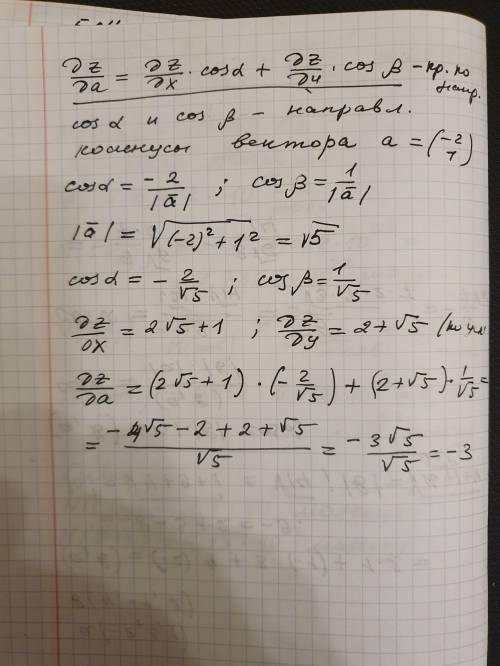 ∂z/∂a = ∂z/∂x · cosα + ∂z/∂y · cos β – пр. по напр.
cos α и cos β – направл.
косинусы вектора a = (-2 1)
cosα = -2/|ā| ; cosβ = 1/|ā|
|ā| = √((-2)² + 1²) = √5
cosα = - 2/√5 ; cosβ = 1/√5
∂z/∂x = 2√5 + 1 ; ∂z/∂y = 2 + √5 (по усл
∂z/∂a = (2√5 + 1) · (- 2/√5) + (2 + √5) · 1/√5 =
= (-4√5 - 2 + 2 + √5)/√5 = (-3√5)/√5 = -3